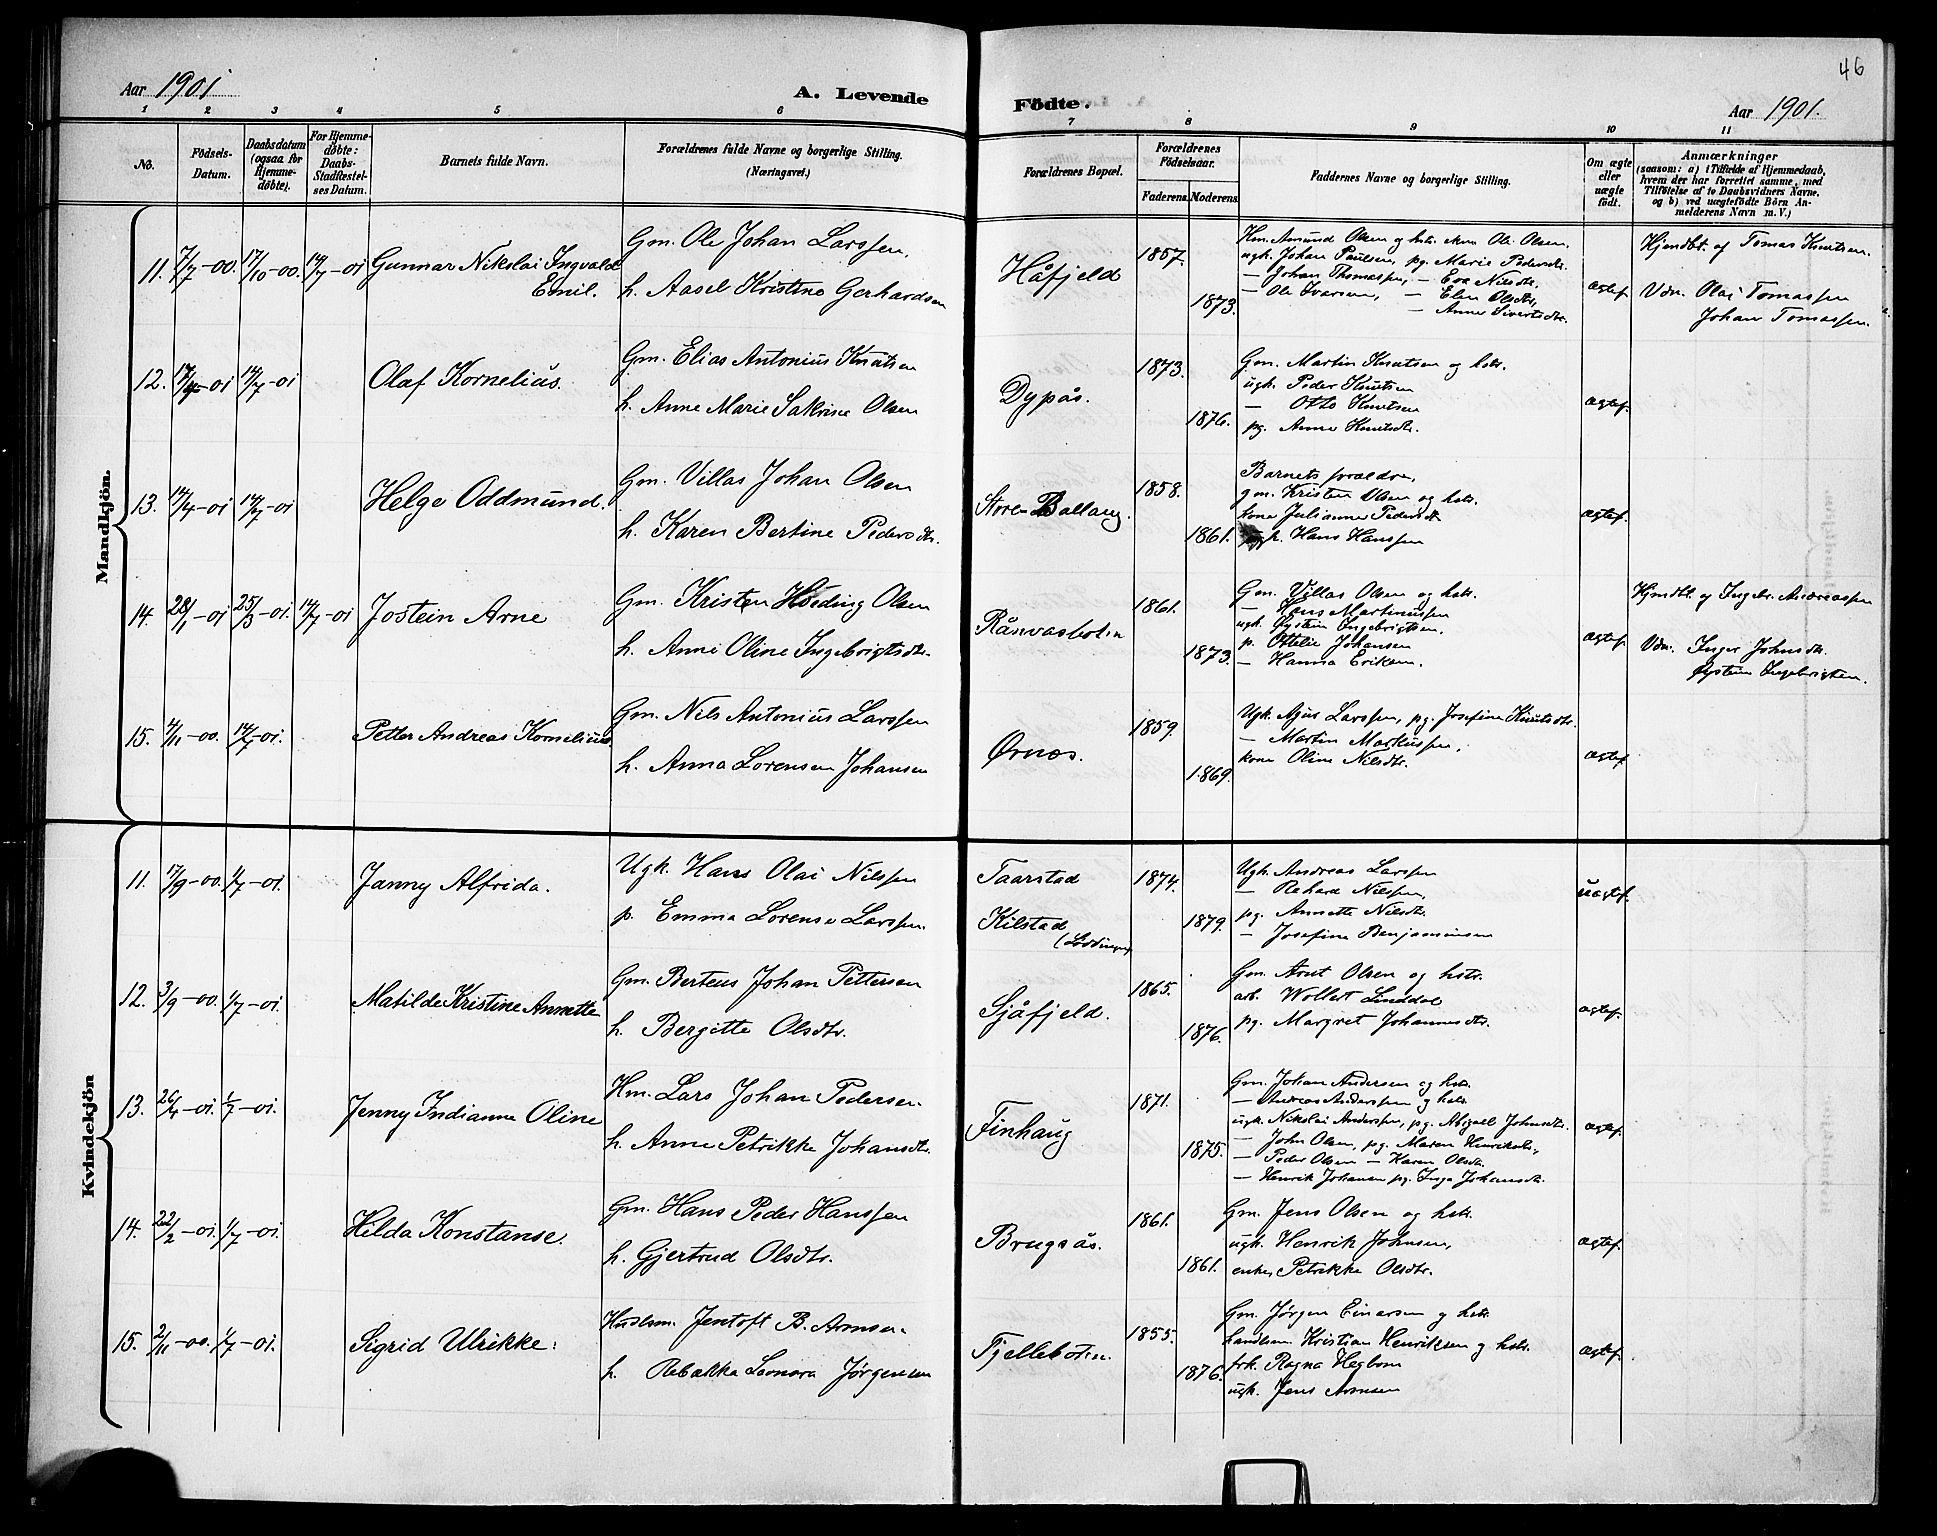 46
Aar 1901
A. Levende Födte.
Aar 1901.
1 2 3 4 5 6 7 8 9 10 11
No.
Födsels-
Datum.
Daabsdatum
(ogsaa for
Hjemme-
döbte).
For Hjemme-
döbte:
Daabs-
Stadfestel-
ses Datum.
Barnets fulde Navn.
Forældrenes fulde Navne og borgerlige Stilling.
(Næringsvei.)
Forældrenes Bopæl.
Forældrenes
Födselsaar.
Faderens.
Moderens.
Faddernes Navne og borgerlige Stilling.
Om ægte
eller
uægte
födt.
Anmærkninger
(saasom: a) i Tilfælde af Hjemmedaab,
hvem der har forrettet samme, med
Tilföielse af to Daabsvidners Navne,
og b) ved uægtefödte Börn An-
melderens Navn m. V.)
Mandkjön.
11. 7/7-00. 17/10-00. 14/7-01 Gunnar Nikolai Ingvald
Emil.
Gm. Ole Johan Larssen,
h. Aasel Kristine Gerhardsen
Håfjeld
1857.
1873.
Km. Amund Olsen og hstr. Ole Olsen,
ugk. Johan Paulsen, pg. Marie Pedersdtr.
— Johan Thomassen, — Eva Nilsdtr.
— Ole Ivarsen, — Elen Olsdtr,
— Anne Sivertsdtr.
ægtef.
Hjmdbt. af Tomas Knutsen.
Vdn. Olai Tomassen
Johan Tomassen.
12. 14/7-01
Olaf Kornelius.
Gm. Elias Antonius Knutsen
h. Anne Marie Sakrine Olsen
Dypås.
1873.
1876.
Gm. Martin Knutsen og hstr.
ugk. Peder Knutsen
— Otto Knutsen
pg. Anna Knutsdtr.
ægtef.
13. 14/4-01 14/7-01
Helge Oddmund.
Gm. Villas Johan Olsen
h. Karen Bertine Pedersdtr.
Store-Ballang.
1858.
1861.
Barnets forældre,
gm. Kristen Olsen og hstr.
kone Julianne Pedersdtr
ugk. Hans Hanssen
ægtef.
14. 28/1-01 25/3-01. 14/7-01
Jostein Arne
Gm. Kristen Høeding Olsen
h. Anne Oline Ingebrigtsdtr.
Rånvasbotn
1861.
1873.
Gm. Villas Olsen og hstr.
— Hans Martinussen
ugk. Øystein Ingebrigtsen,
p. Ottelie Johansen
— Hanna Eriksen.
ægtef.
Hjmdbt. af Ingebr. Andreassen
Vdn. Inger Johnsdtr.
Øystein Ingebrigtsen.
15. 4/11-00. 14/7-01.
Petter Andreas Kornelius
Gm. Nils Antonius Larssen
h. Anna Lorensen Johansen
Ørnes.
1859.
1869.
Ugk. Agus Larssen, pg. Josefine Knutsdtr.
— Martin Markussen,
kone Oline Nilsdtr.
ægtef.
Kvindekjön
11. 17/9-00. 1/7-01.
Janny Alfrida.
Ugk. Hans Olai Nilssen
p. Emma Lorense Larssen.
Taarstad
Kilstad
(Lødingen)
1874.
1879.
Ugk. Andreas Larssen
— Rehard Nilssen,
pg. Annette Nilsdtr.
— Josefine Benjaminsen
uægtef.
12. 3/9-00. 1/7-01.
Matilde Kristine Annette
Gm. Berteus Johan Pettersen
h. Bergitte Olsdtr.
Sjåfjeld.
1865.
1876.
Gm. Arnt Olsen og hstr.
arb. Wollert Linddal
pg. Margret Johannesdtr.
ægtef.
13. 26/4-01. 1/7-01.
Jenny Indianna Oline
Hm. Lars Johan Pedersen.
h. Anne Petrikke Johansdtr.
Finhaug
1871.
1875.
Gm. Johan Andersen og hstr.
— Andreas Anderssen og hstr.
ugk. Nikolai Anderssen, pg. Abigael Johnsdtr.
— John Olsen, pg. Maren Henriksdtr,
— Peder Olsen — Karen Olsdtr.
— Henrik Johansen pg. Inga Johansdtr.
ægtef.
14. 22/2-01. 1/7-01.
Hilda Konstanse.
Gm. Hans Peder Hanssen
h. Gjertrud Olsdtr.
Brugsås.
1861.
1861.
Gm. Jens Olsen og hstr.
ugk. Henrik Johnsen,
enke, Petrikke Olsdtr.
ægtef.
15. 2/11-00. 1/7-01.
Sigrid Ulrikke.
Husbm. Jentoft B. Arnsen.
h. Rebekka Leonora Jørgensen
Fjellebotn.
1855.
1876.
Gm. Jørgen Einarsen og hstr.
handlsm Kristian Henriksen og hstr.
frk. Ragna Hegbom
ugk. Jens Arnsen
ægtef.